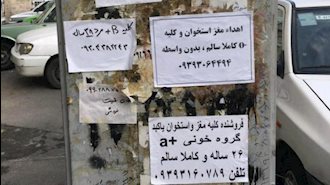 کلیه B+ مرد ۲۵ ساله
۰۹۲۰۴۳۸۲۴۳
اهداء مغز استخوان و کلیه
o- کاملا سالم ، بدون واسطه
۰۹۳۹۳۰۶۴۴۹۴
فروشنده کلیه مغز واستخوان باکبد
گروه خونی a+
۲۶ ساله و کاملا سالم
تلفن ۰۹۳۹۳۱۶۰۷۸۹